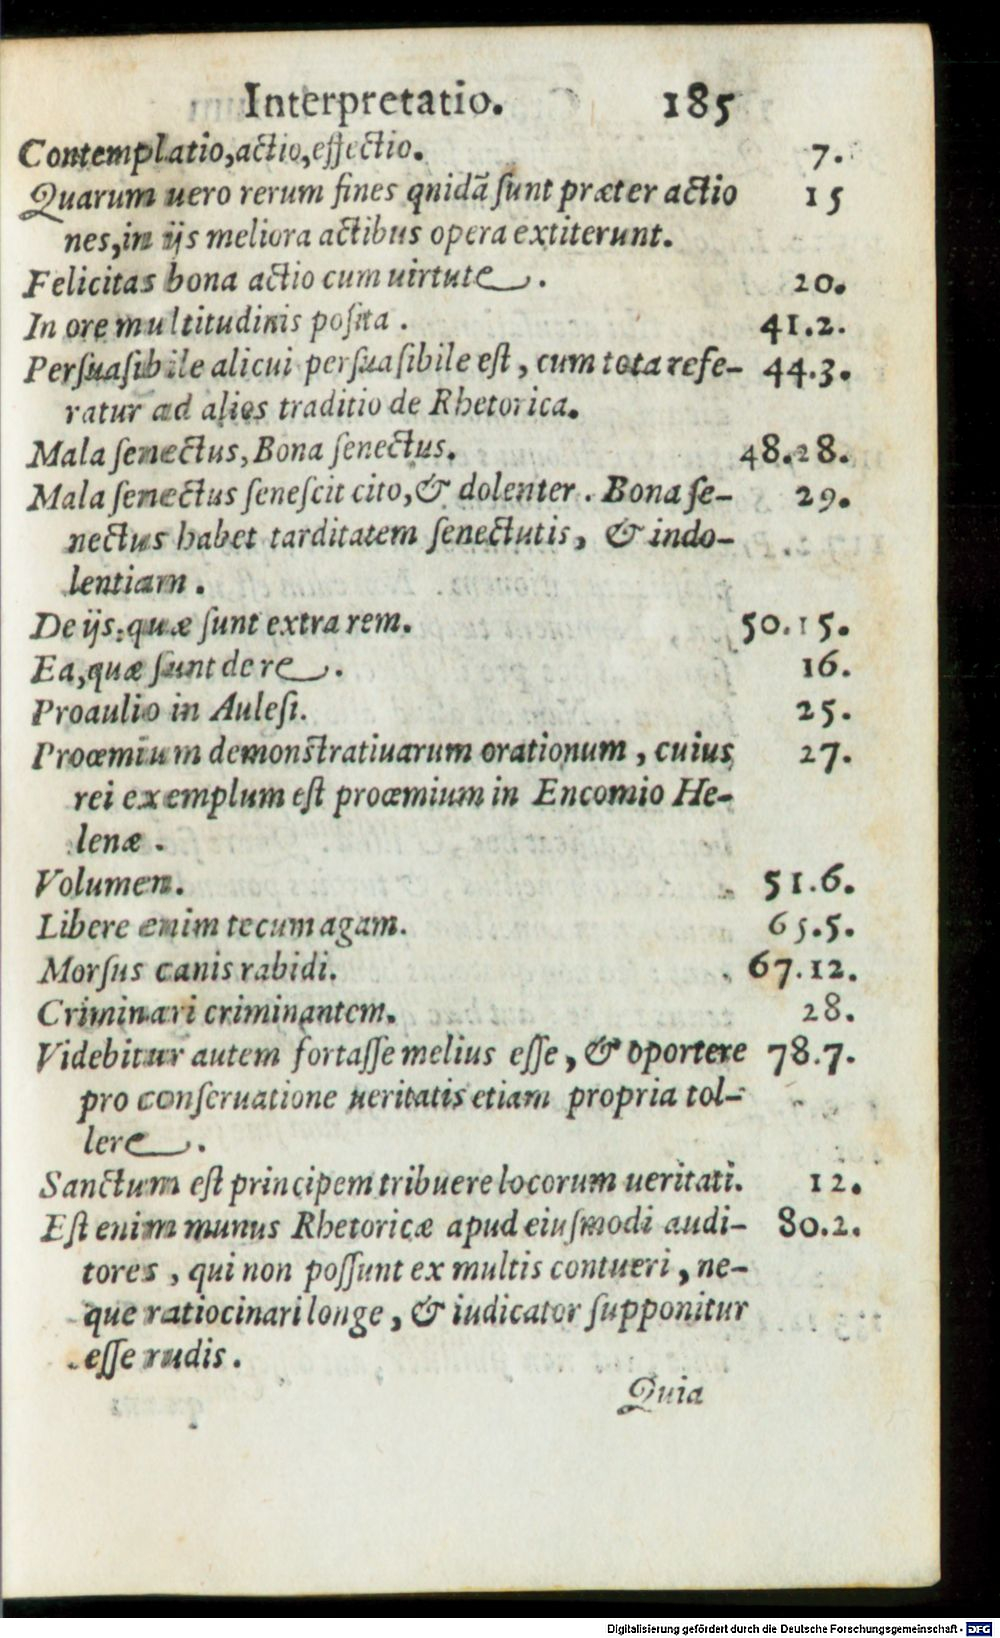 Interpretatio. 185
Contemplatio, actio, effectio. 7.
Quarum uero rerum fines qnidā ſunt præter actio 15
nes, in ijs meliora actibus opera extiterunt.
Felicitas bona actio cum uirtute. 20.
In ore multitudinis poſita. 41.2.
Perſuaſibile alicui perſuaſibile eſt, cum tota refe- 44.3.
ratur ad alios traditio de Rhetorica.
Mala ſenectus, Bona ſenectus. 48.28.
Mala ſenectus ſeneſcit cito, & dolenter. Bona ſe- 29.
nectus habet tarditatem ſenectutis, & indo-
lentiam.
De ijs, quæ ſunt extra rem. 50.15.
Ea, quæ ſunt de re. 16.
Proaulio in Auleſi. 25.
Proœmium demonſtratiuarum orationum, cuius 27.
rei exemplum eſt proœmium in Encomio He-
lenæ.
Volumen. 51.6.
Libere enim tecum agam. 65.5.
Morſus canis rabidi. 67.12.
Criminari criminantem. 28.
Videbitur autem fortaſſe melius eſſe, & oportere 78.7.
pro conſeruatione ueritatis etiam propria tol-
lere.
Sanctum eſt principem tribuere locorum ueritati. 12.
Eſt enim munus Rhetoricæ apud eiuſmodi audi- 80.2.
tores, qui non poſſunt ex multis contueri, ne-
que ratiocinari longe, & iudicator ſupponitur
eſſe rudis.
Quia
Digitalisierung gefördert durch die Deutsche Forschungsgemeinschaft - DFG